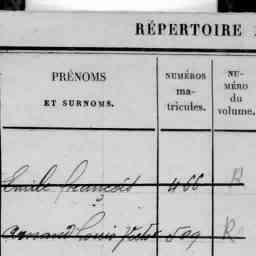 RÉPERTOIRE
PRÉNOMS
ET SURNOMS.
NUMÉROS
ma-
tricules.
NU-
MÉRO
du
volume.
Emile François 466 R
Armand Louis Victor 509 R